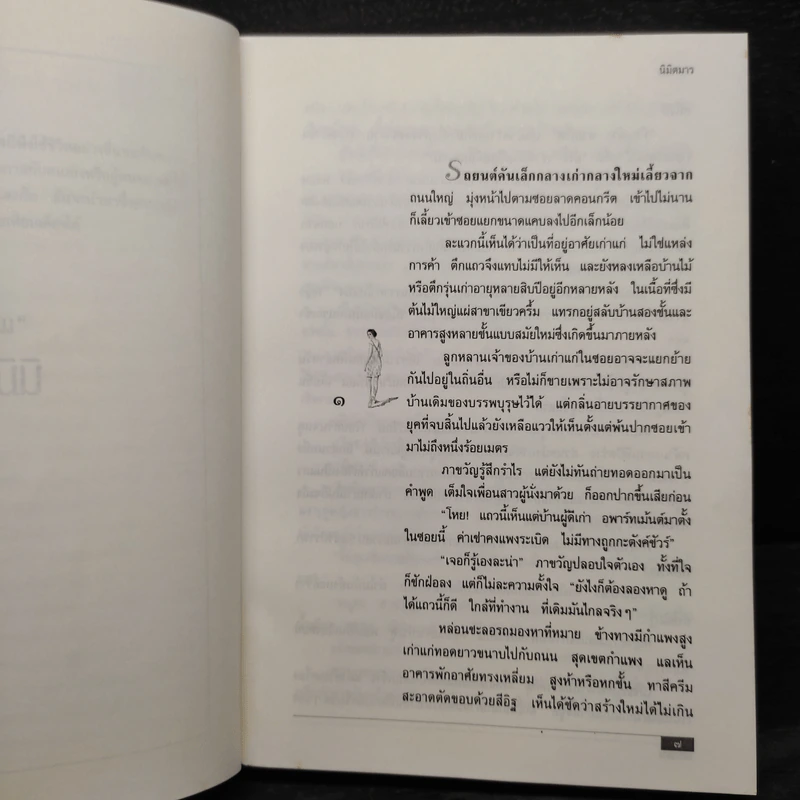 นิมิตมาร
รถยนต์คันเล็กกลางเก่ากลางใหม่เลี้ยวจาก
ถนนใหญ่ มุ่งหน้าไปตามซอยลาดคอนกรีต เข้าไปไม่นาน
ก็เลี้ยวเข้าซอยแยกขนาดแคบลงไปอีกเล็กน้อย
ละแวกนี้เห็นได้ว่าเป็นที่อยู่อาศัยเก่าแก่ ไม่ใช่แหล่ง
การค้า ตึกแถวจึงแทบไม่มีให้เห็น และยังหลงเหลือบ้านไม้
หรือตึกรุ่นเก่าอายุหลายสิบปีอยู่อีกหลายหลัง ในเนื้อที่ซึ่งมี
ต้นไม้ใหญ่แผ่สาขาเขียวครึ้ม แทรกอยู่สลับบ้านสองชั้นและ
อาคารสูงหลายชั้นแบบสมัยใหม่ซึ่งเกิดขึ้นมาภายหลัง
ลูกหลานเจ้าของบ้านเก่าแก่ในซอยอาจจะแยกย้าย
กันไปอยู่ในถิ่นอื่น หรือไม่ก็ขายเพราะไม่อาจรักษาสภาพ
๑
บ้านเดิมของบรรพบุรุษไว้ได้ แต่กลิ่นอายบรรยากาศของ
ยุคที่จบสิ้นไปแล้วยังเหลือแววให้เห็นตั้งแต่พ้นปากซอยเข้า
มาไม่ถึงหนึ่งร้อยเมตร
ภาขวัญรู้สึกรำไร แต่ยังไม่ทันถ่ายทอดออกมาเป็น
คำพูด เต็มใจเพื่อนสาวผู้นั่งมาด้วย ก็ออกปากขึ้นเสียก่อน
“โหย! แถวนี้เห็นแต่บ้านผู้ดีเก่า อพาร์ทเม้นต์มาตั้ง
ในซอยนี้ ค่าเช่าคงแพงระเบิด ไม่มีทางถูกกะตังค์ชัวร์”
“เจอก็รู้เองละน่า” ภาขวัญปลอบใจตัวเอง ทั้งที่ใจ
ก็ชักฝ่อลง แต่ก็ไม่ละความตั้งใจ “ยังไงก็ต้องลองหาดู ถ้า
ได้แถวนี้ก็ดี ใกล้ที่ทำงาน ที่เดิมมันไกลจริงๆ”
หล่อนชะลอรถมองหาที่หมาย ข้างทางมีกำแพงสูง
เก่าแก่ทอดยาวขนาบไปกับถนน สุดเขตกำแพง แลเห็น
อาคารพักอาศัยทรงเหลี่ยม สูงห้าหรือหกชั้น ทาสีครีม
สะอาดตัดขอบด้วยสีอิฐ เห็นได้ชัดว่าสร้างใหม่ได้ไม่เกิน
๗